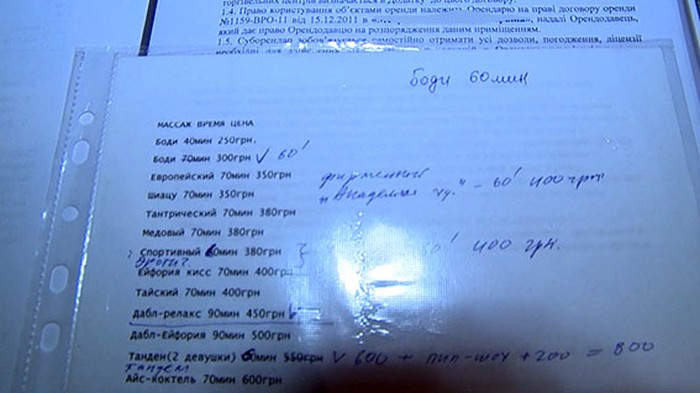 торгівельних центрів визначається в Додатку до цього договору.
1.4. Право користування об'єктами оренди належить Орендарю на праві договору оренди
№1159-ВРО-11 від 15.12.2011 в надалі Орендодавець,
який дає право Орендодавцю на розпорядження даним приміщенням.
1.5. Суборендар зобов'язується самостійно отримати усі дозволи, погодження, ліцензії
Боди 60мин
МАССАЖ ВРЕМЯ ЦЕНА
Боди 40мин 250грн.
Боди 70мин 300грн V 60'
Европейский 70мин 350грн фирменный
Шиацу 70мин 350грн - 60' 400 грн
Тантрический 70мин 380грн
Медовый 70мин 380грн
Спортивный 60мин 380грн } 60' 400 грн.
эротич.
Ейфория кисс 70мин 400грн
Тайский 70мин 400грн
Дабл-релакс 90мин 450грн
Дабл-Ейфория 90мин 500грн
Танден(2 девушки) 60мин 550грн V 600 + пип-шоу + 200 = 800
Тандем
Айс-коктель 70мин 600грн